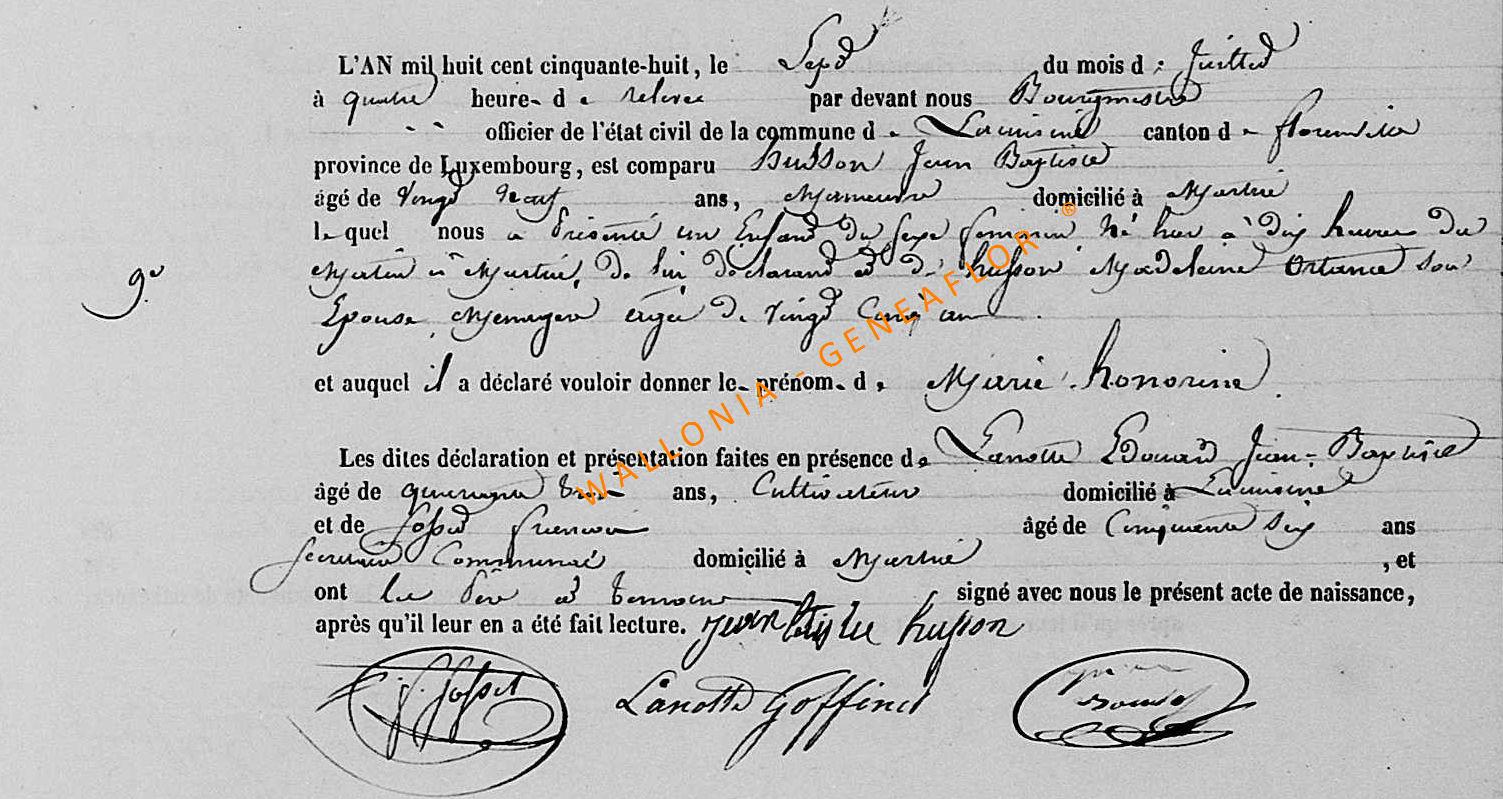 L'AN mil huit cent cinquante-huit, le Sept du mois de Juillet
à quatre heure- de relevée par devant nous Bourgmestre
officier de l'état civil de la commune de Lacuisine canton de florenville
province de Luxembourg, est comparu husson Jean Baptiste
âgé de vingt neuf ans, Manœuvre domicilié à Martué
le quel nous a Présenté un Enfant Du Sexe feminin Né hier à Dix heures Du
9e Matin à Martué, De lui Déclarant et De husson Madeleine Ortance Son
Epouse, Menagere agée De vingt Cinq ans.
et auquel il a déclaré vouloir donner le- prénom- de Marie honorine
Les dites déclaration et présentation faites en présence de Lanotte Edouard Jean-Baptiste
âgé de quarante trois ans, Cultivateur domicilié à Lacuisine
et de Josset francois âgé de Cinquante Six ans
Secretaire Communal domicilié à Martué , et
ont les Père et temoins signé avec nous le présent acte de naissance,
après qu'il leur en a été fait lecture. Jean batiste husson
J. Josset Lanotte Goffinet
WALLONIA - GENEAFLOR ®